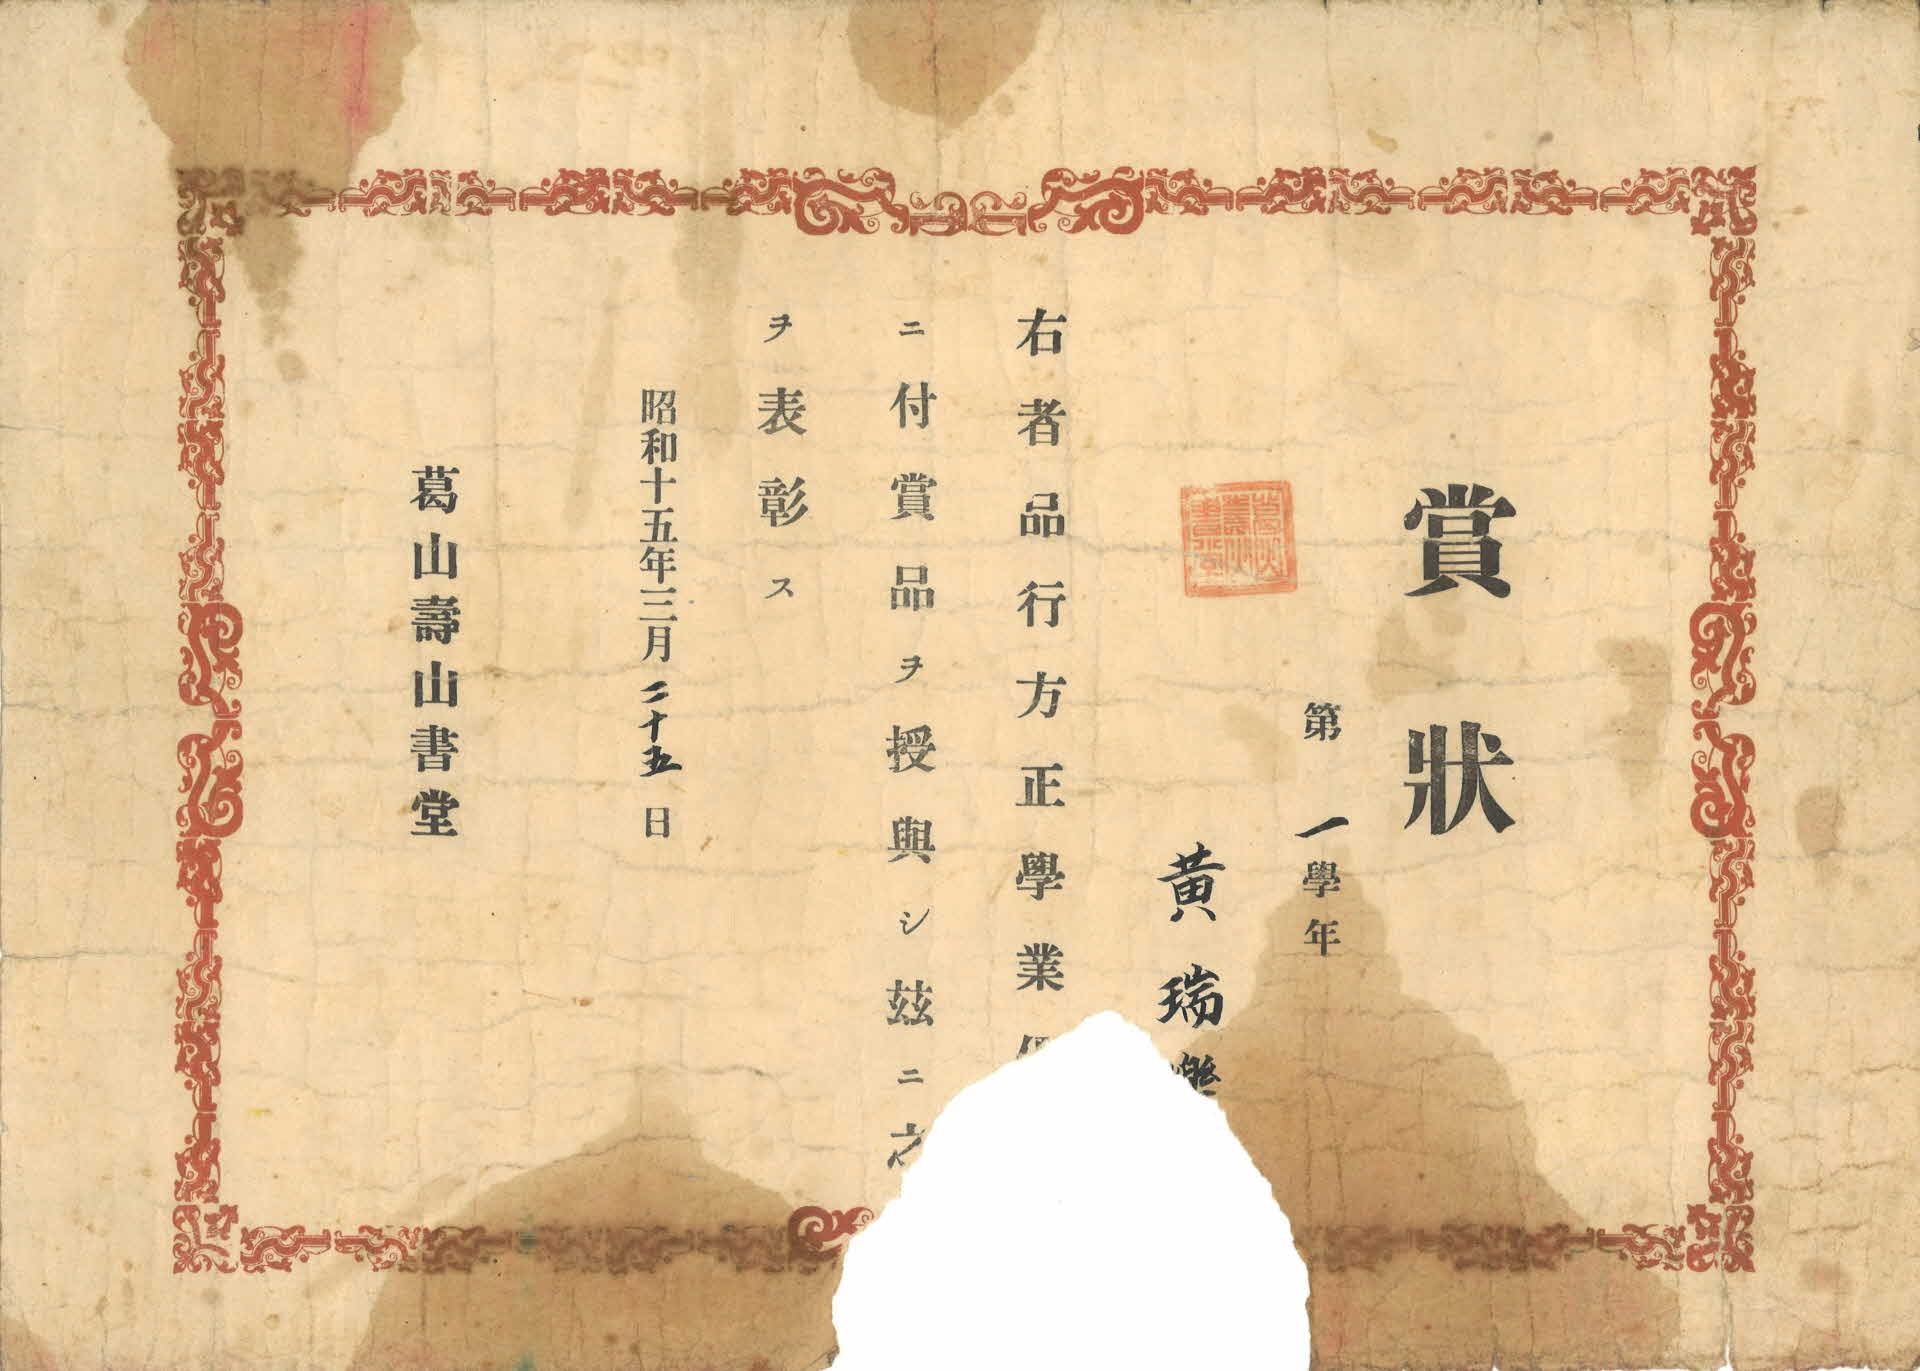 賞狀
第一學年
黃瑞
葛山壽山書堂
右者品行方正學業
ニ付賞品ヲ授與シ玆ニ之
ヲ表彰ス
昭和十五年三月二十五日
葛山壽山書堂